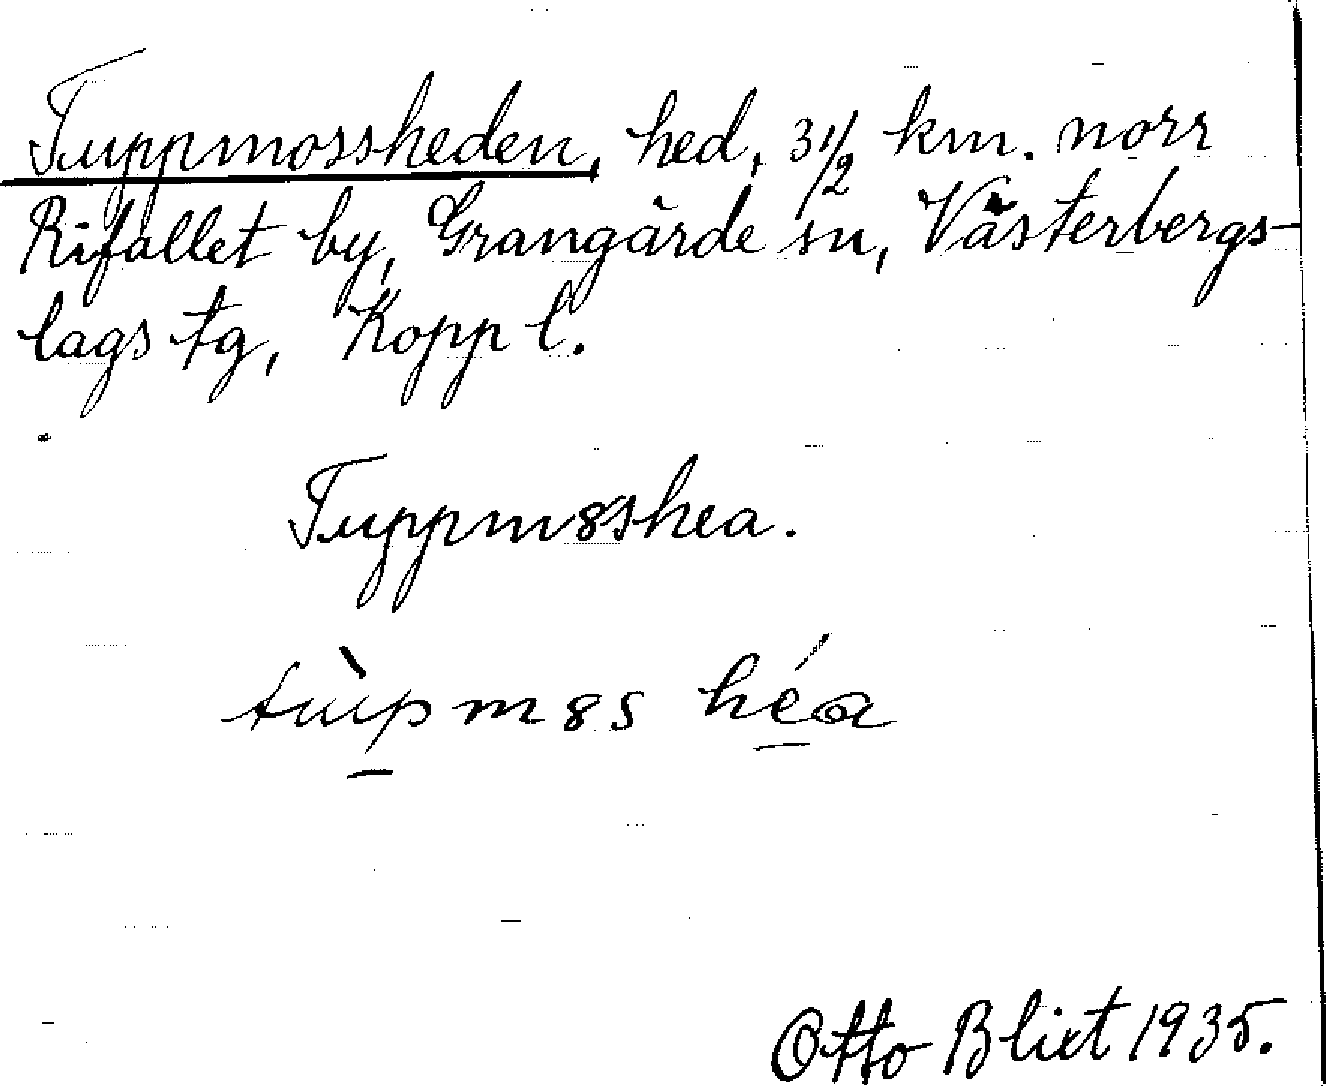 Tuppmossheden, hed, 3 1/2 km. norr
Rifallet by, Grangärde sn, Västerbergs-
lags tg, Kopp l.
Tuppm8shea.
tùpm8s héa
Otto Blixt 1935.